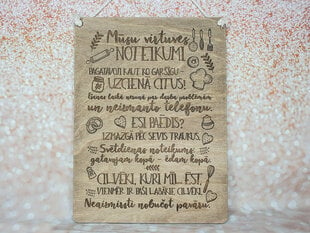 Mūsu virtuves
NOTEIKUMI
PAGATAVOJ KAUT KO GARŠĪGU -
UZCIENĀ CITUS!
Ēdiena laikā nerunā par darba problēmām
un neizmanto telefonu.
ESI PAĒDIS?
IZMAZGĀ PĒC SEVIS TRAUKUS.
Svētdienas noteikums:
gatavojam kopā - ēdam kopā
CILVĒKI, KURI MĪL ĒST,
VIENMĒR IR PAŠI LABĀKIE CILVĒKI.
Neaizmirsti nobučot pavāru.